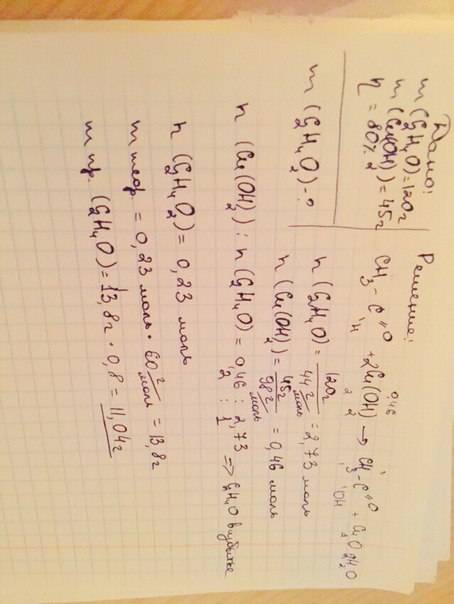 Дано:
m (C₂H₄O) = 120г
m (Cu(OH)₂) = 45г
η = 80%
m (C₂H₄O₂) - ?
Решение:
0,46
CH₃-C=O H + 2Cu(OH)₂ → CH₃-C=O OH + Cu₂O 2H₂O
n (C₂H₄O) = 120г / 44 г/моль = 2,73 моль
n (Cu(OH)₂) = 45г / 98 г/моль = 0,46 моль
n (Cu(OH)₂) : n (C₂H₄O) = 0,46 : 2,73 => C₂H₄O в избытке
2 : 1
n (C₂H₄O₂) = 0,23 моль
m теор = 0,23 моль · 60 г/моль = 13,8г
m пр. (C₂H₄O) = 13,8г · 0,8 = 11,04г